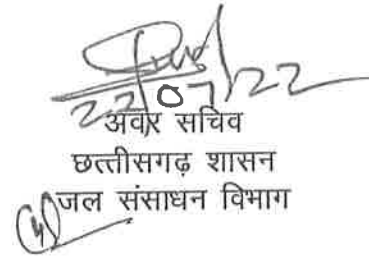 22/07/22
अवर सचिव
छत्तीसगढ़ शासन
जल संसाधन विभाग